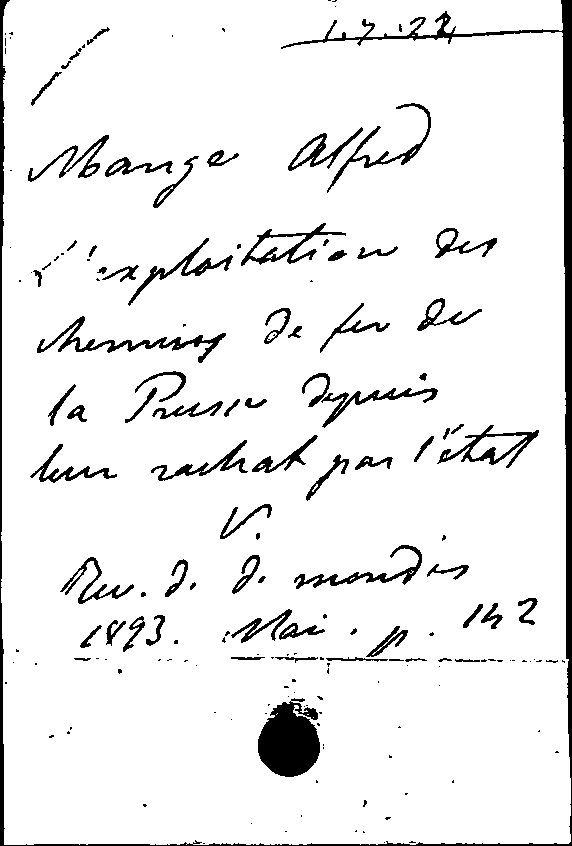 1.7.22
Mange Alfred
L'exploitation des
chemins de fer de
la Prusse depuis
leur rachat par l'état
V.
Rev. d. d. mondes
1893. Mai. p. 142